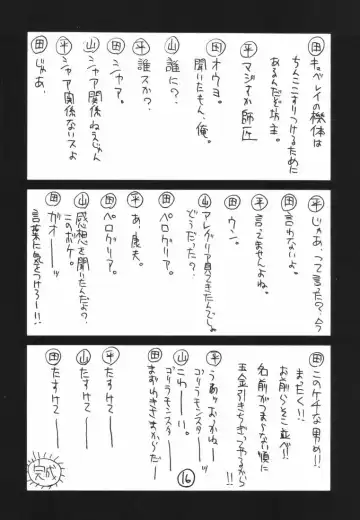 田 キュベレイの機体は
ちんここすりつけるために
あるんだぞ坊主。
平 マジすか師匠
田 オウヨ。
聞いたもん、俺。
山 誰に?
平 誰スか?
田 シャア。
山 シャア関係ねえじゃん
平 シャア関係ないスよ
田 じゃあ、
平 じゃあ、って言った?今
田 言わないよ。
平 言ってませんよね。
田 ウン。
山 アレグリア見てきたんでしょ
どうだった?
田 ペログリア。
平 あ、康夫。
田 ペログリア。
山 感想を聞いたんだよ?
このボケ。
田 ガオーーーッ
言葉に気をつけろー!!
田 このケチな男め!!
まったく!!
お前らそこ並べ!!
名前がつまらない順に
五金引きちぎってやるから
!!
平 うあッおっかねー
ゴリラモンスター
山 こわーーい。
ゴリラモンスター
田 まずいきさまからだー
平 たすけてーーー
山 たすけてーーー
田 たすけてーーー
16
完成